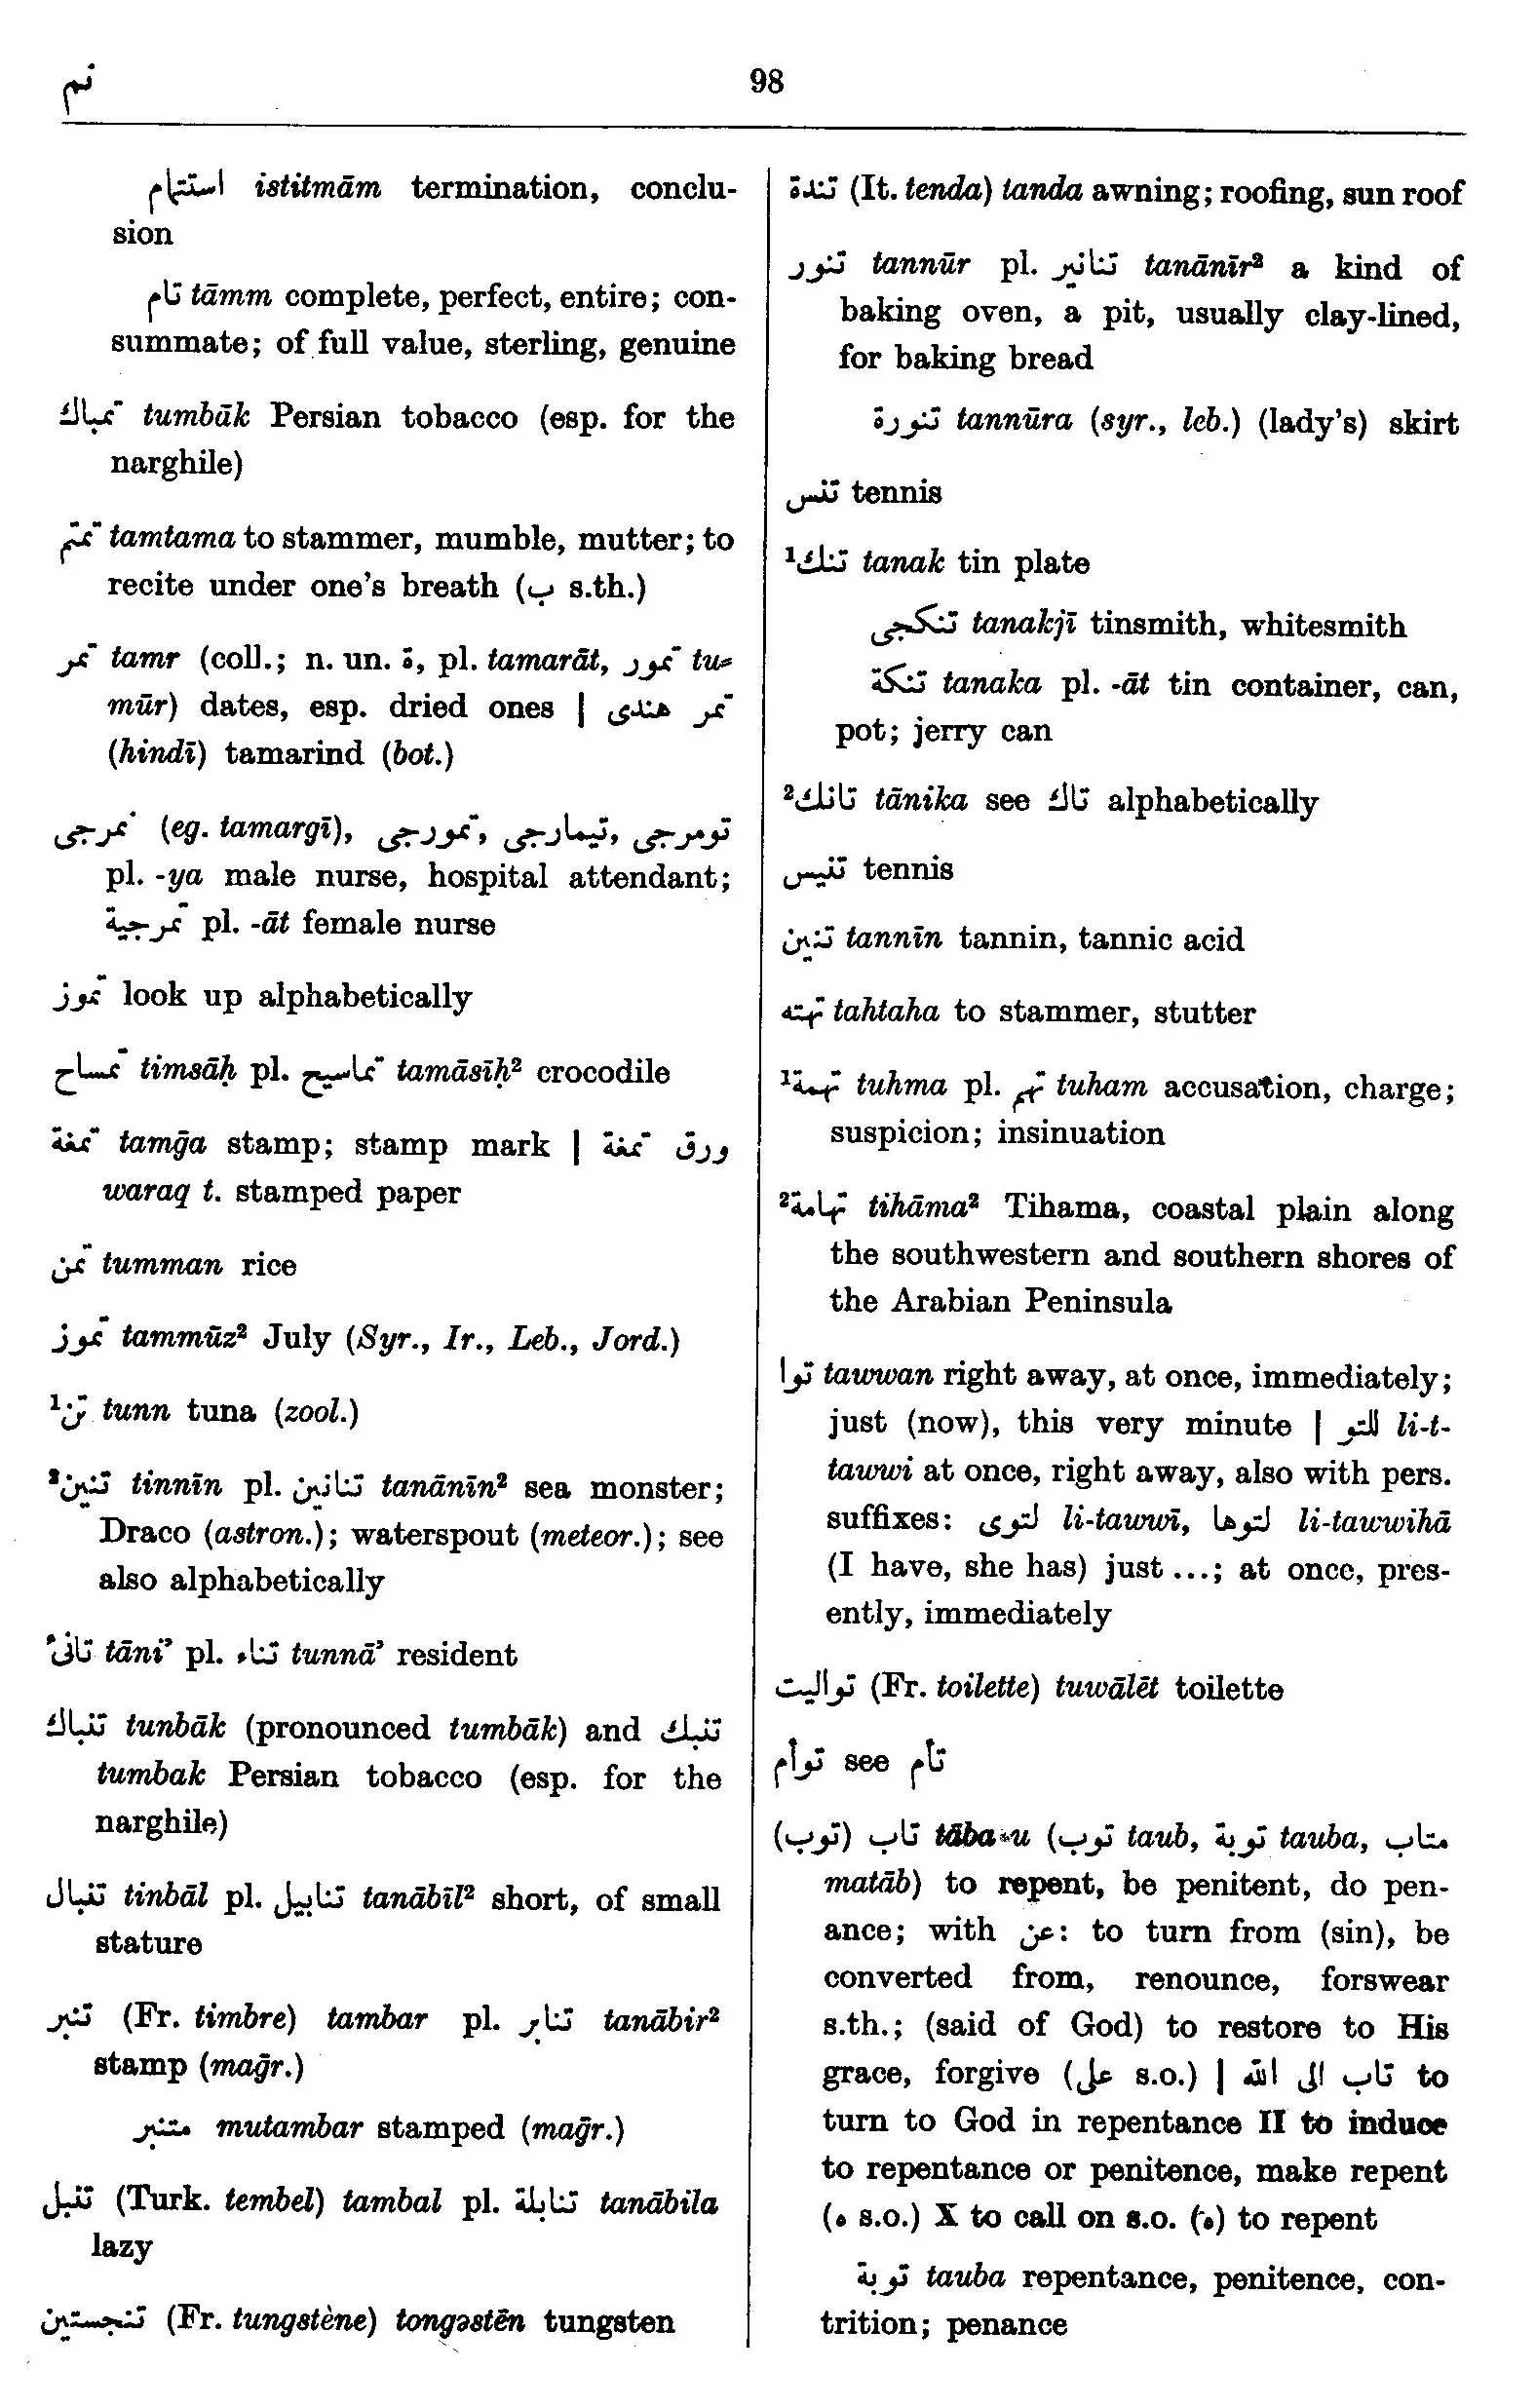 تم
98
استتمام istitmām termination, conclu-
sion
تام tāmm complete, perfect, entire; con-
summate; of full value, sterling, genuine
تمباك tumbāk Persian tobacco (esp. for the
narghile)
تمتم tamtama to stammer, mumble, mutter; to
recite under one's breath (ب s.th.)
تمر tamr (coll.; n. un. ة, pl. tamarāt, تمور tu-
mūr) dates, esp. dried ones | تمر هندى
(hindī) tamarind (bot.)
تمرجى (eg. tamargī), تمورجى, تيمارجى, تومرجى
pl. -ya male nurse, hospital attendant;
تمرجية pl. -āt female nurse
تموز look up alphabetically
تمساح timsāḥ pl. تماسيح tamāsīḥ² crocodile
تمغة tamḡa stamp; stamp mark | ورق تمغة
waraq t. stamped paper
تمن tumman rice
تموز tammūz² July (Syr., Ir., Leb., Jord.)
تن¹ tunn tuna (zool.)
تنين² tinnīn pl. تنانين tanānīn² sea monster;
Draco (astron.); waterspout (meteor.); see
also alphabetically
تانئ tāni' pl. تناء tunnā' resident
تنباك tunbāk (pronounced tumbāk) and تنبك
tumbak Persian tobacco (esp. for the
narghile)
تنبال tinbāl pl. تنابيل tanābīl² short, of small
stature
تنبر (Fr. timbre) tambar pl. تنابر tanābir²
stamp (maḡr.)
متنبر mutambar stamped (maḡr.)
تنبل (Turk. tembel) tambal pl. تنابلة tanābila
lazy
تنجستين (Fr. tungstène) tongəstēn tungsten
تندة (It. tenda) tanda awning; roofing, sun roof
تنور tannūr pl. تنانير tanānīr² a kind of
baking oven, a pit, usually clay-lined,
for baking bread
تنورة tannūra (syr., leb.) (lady's) skirt
تنس tennis
تنك¹ tanak tin plate
تنكجى tanakjī tinsmith, whitesmith
تنكة tanaka pl. -āt tin container, can,
pot; jerry can
تانك² tānika see تاك alphabetically
تنيس tennis
تنين tannīn tannin, tannic acid
تهته tahtaha to stammer, stutter
تهمة¹ tuhma pl. تهم tuham accusation, charge;
suspicion; insinuation
تهامة² tihāma² Tihama, coastal plain along
the southwestern and southern shores of
the Arabian Peninsula
توا tawwan right away, at once, immediately;
just (now), this very minute | للتو li-t-
tawwi at once, right away, also with pers.
suffixes: لتوى li-tawwī, لتوها li-tawwihā
(I have, she has) just ...; at once, pres-
ently, immediately
تواليت (Fr. toilette) tuwālēt toilette
توأم see تأم
(توب) تاب tāba u (توب taub, توبة tauba, متاب
matāb) to repent, be penitent, do pen-
ance; with عن: to turn from (sin), be
converted from, renounce, forswear
s.th.; (said of God) to restore to His
grace, forgive (على s.o.) | تاب الى الله to
turn to God in repentance II to induce
to repentance or penitence, make repent
(ه s.o.) X to call on s.o. (ه) to repent
توبة tauba repentance, penitence, con-
trition; penance